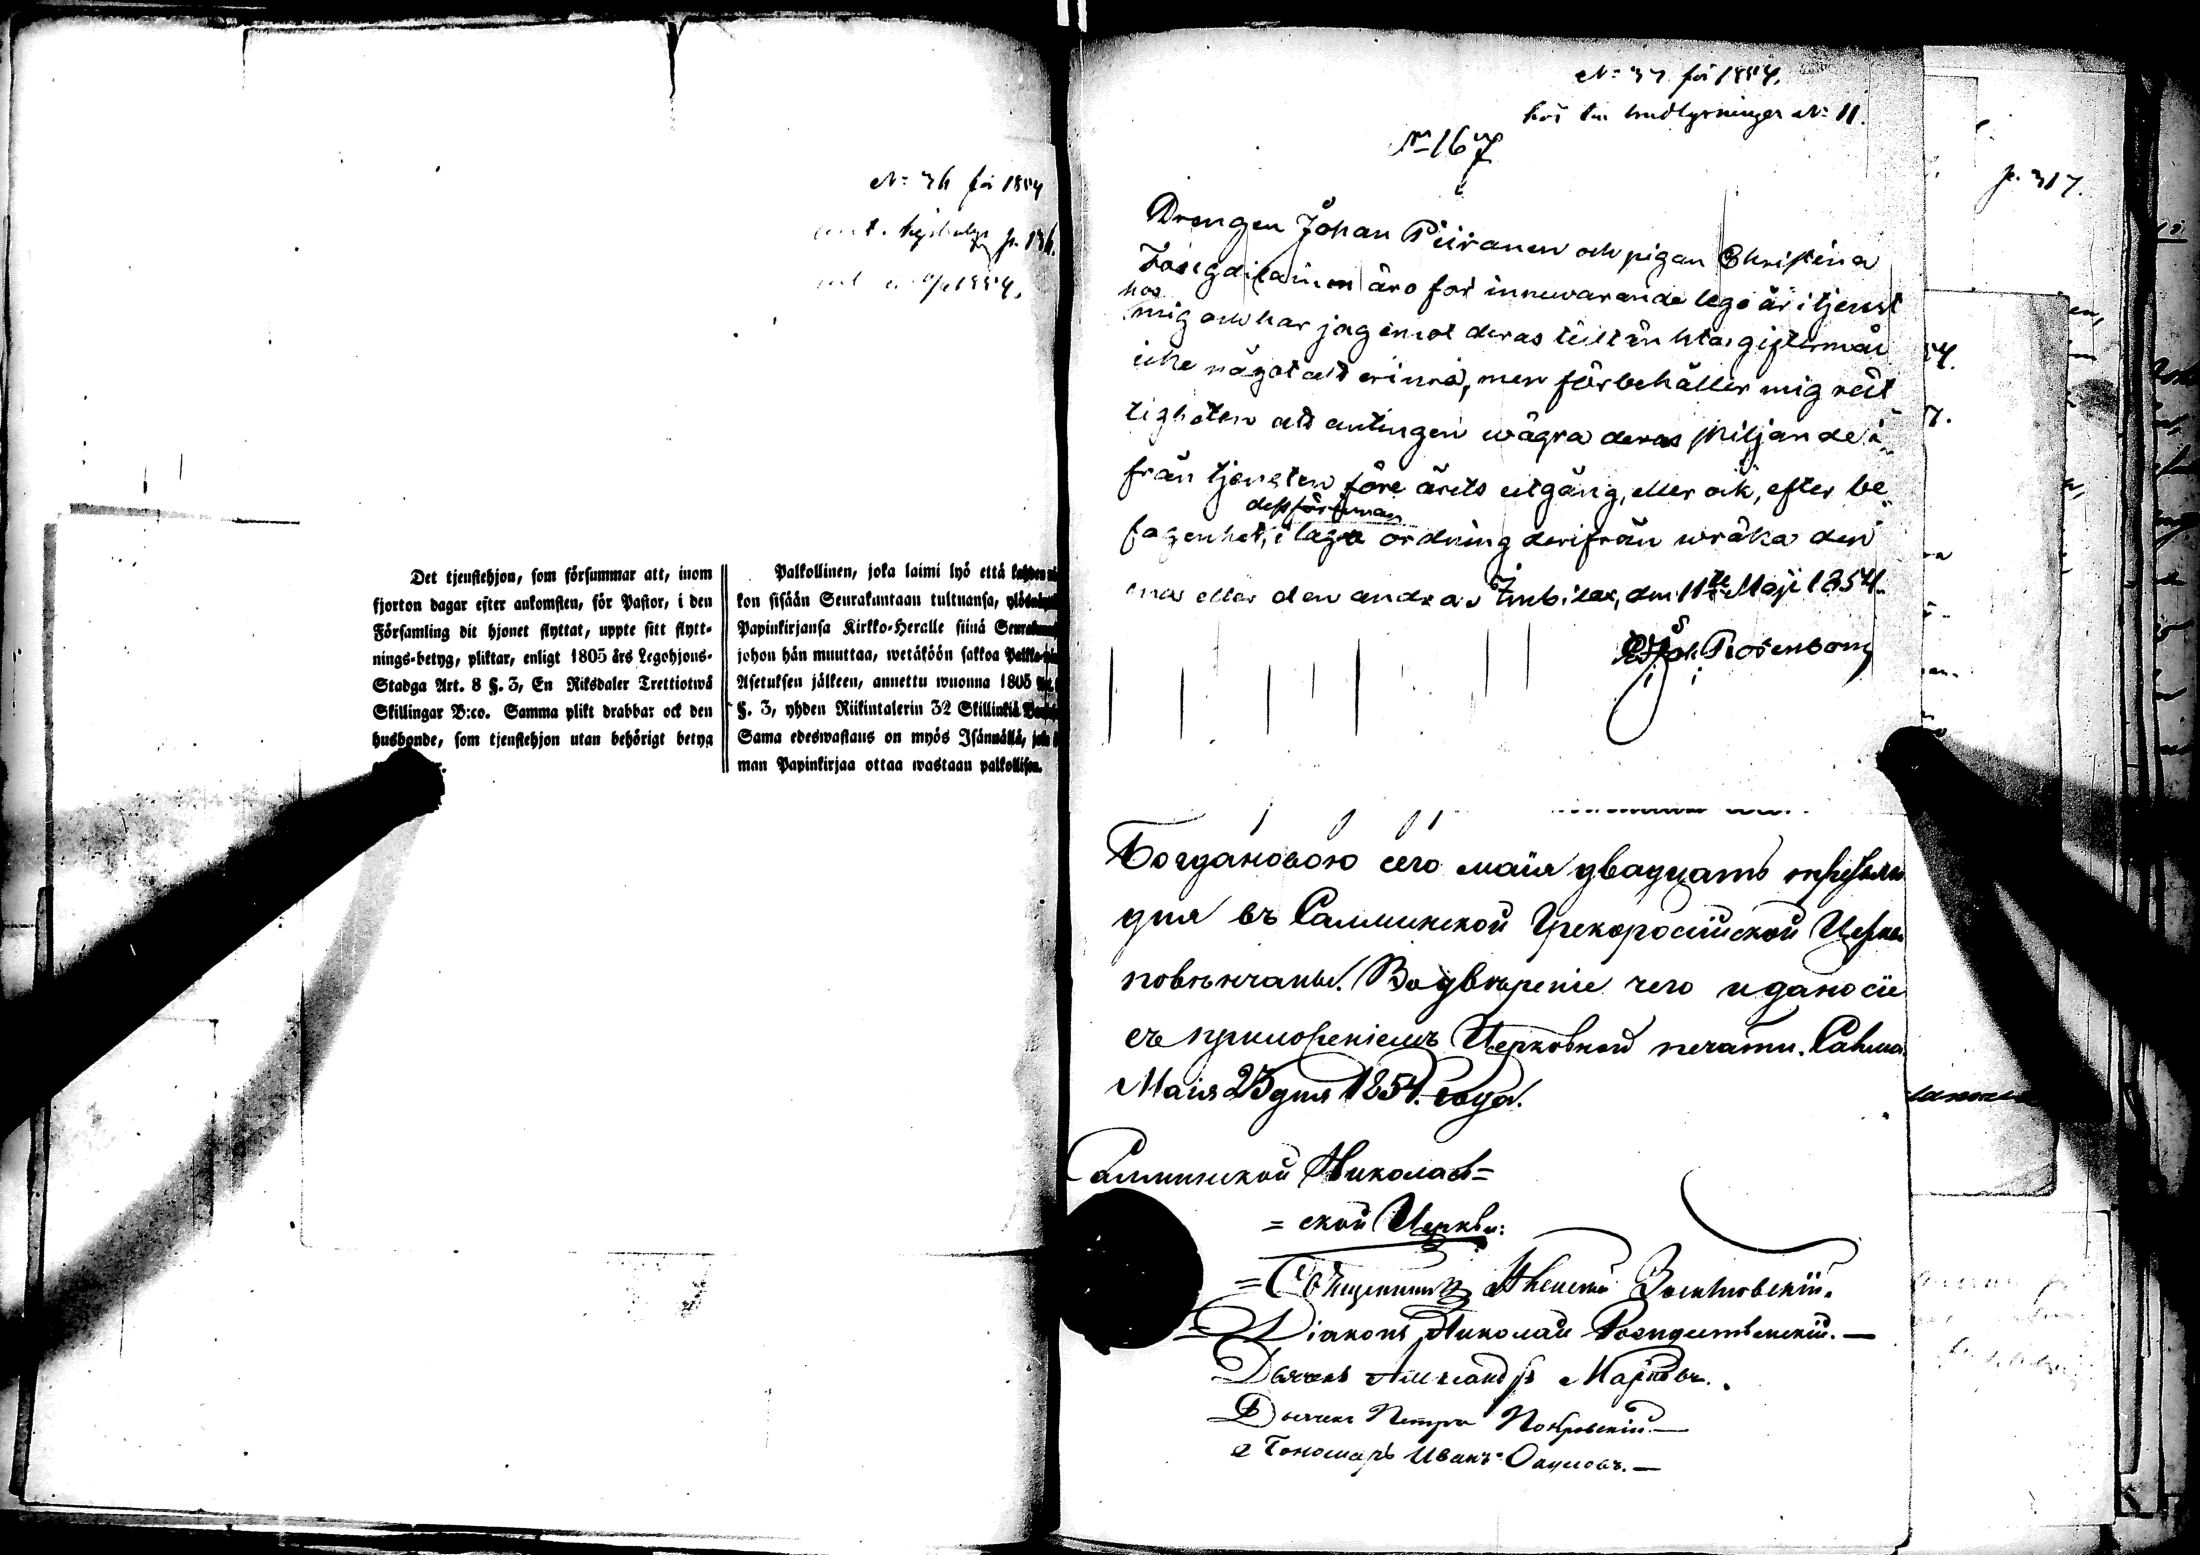 No 36 för 1854
p. 136.
1854.
Det tjenstehjon, som försummar att, inom
fjorton dagar efter ankomsten, för Pastor, i den
Församling dit hjonet flyttat, uppte sitt flytt-
nings-betyg, pliktar, enligt 1805 års Legohjons-
Stadga Art. 8 §. 3, En Riksdaler Trettiotwå
Skillingar B:co. Samma plikt drabbar ock den
husbonde, som tjenstehjon utan behörigt betyg
Palkollinen, joka laimi lyö että
kon sisään Seurakuntaan tultuansa,
Papinkirjansa Kirkko-Heralle siinä
johon hän muuttaa, wetäköön sakkoa
Asetuksen jälkeen, annettu wuonna 1805
§. 3, yhden Riikintalerin 32 Skillinkiä
Sama edeswastaus on myös Isännällä,
man Papinkirjaa ottaa wastaan palkollisen.
No 37 för 1854.
No 11.
No 167
Drengen Johan Piiranen och pigan Christina
äro för innewarande lego år i tjenst
hos
mig och har jag emot deras giftermål
icke något att erinra, men förbehåller mig rät
tigheten att antingen wägra deras skiljande i
från tjensten före årets utgång, eller ock, efter be
dessförinnan
fagenhet, i laga ordning derifrån wräka den
ena eller den andra. Imbilax, den 11te Maji 1854.
Rosenbom
p. 317.
Богдановою сего маія двадцать третьяго
дня въ Салминской Грекоросійской Церкви
повѣнчаны. Во увѣреніе чего и дано сіе
съ приложеніемъ Церковной печати. Салма.
Маія 23 дня 1854. года.
Салминской Николаев=
=ской Церкви:
=Священникъ Алексей
Діаконъ Николай Рождественскій.—
Дьячекъ Александръ Марковъ.
Дьячекъ Петръ Покровскій.—
Пономарь Иванъ